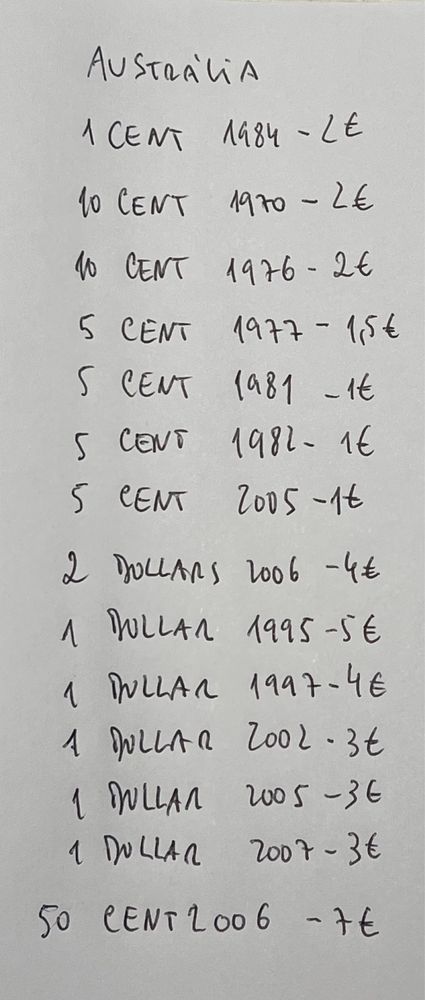 AUSTRÁLIA
1 CENT 1984 - 2€
10 CENT 1970 - 2€
10 CENT 1976 - 2€
5 CENT 1977 - 1,5€
5 CENT 1981 - 1€
5 CENT 1982 - 1€
5 CENT 2005 - 1€
2 DOLLARS 2006 - 4€
1 DOLLAR 1995 - 5€
1 DOLLAR 1997 - 4€
1 DOLLAR 2002 - 3€
1 DOLLAR 2005 - 3€
1 DOLLAR 2007 - 3€
50 CENT 2006 - 7€